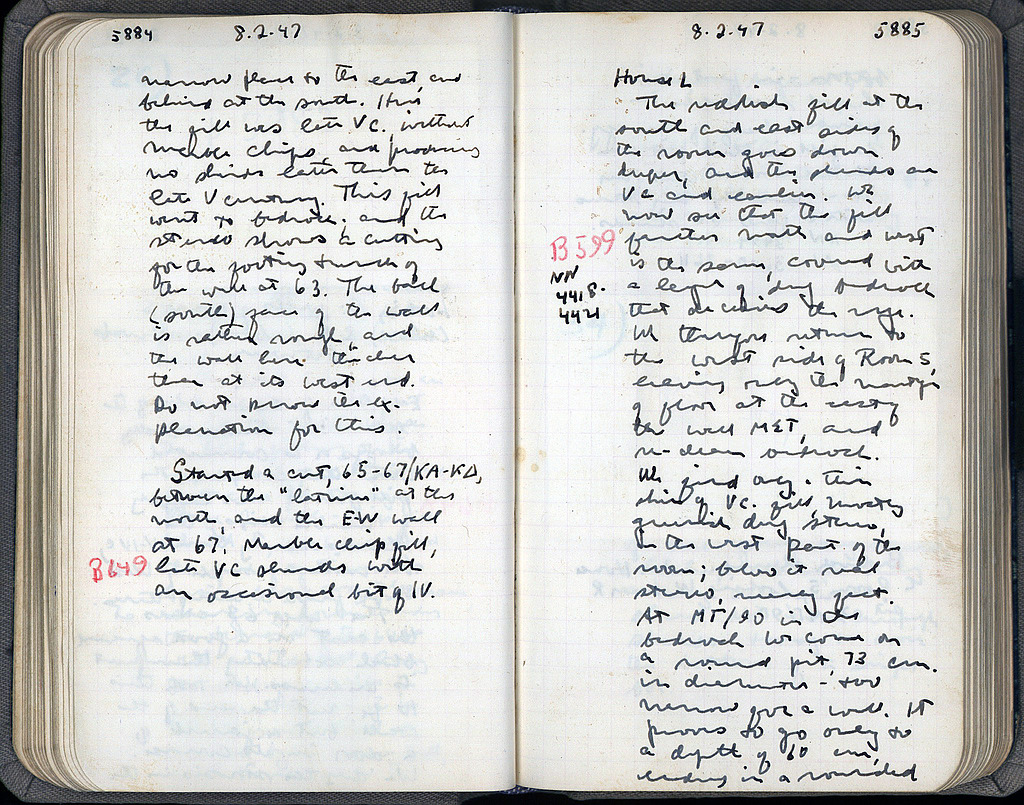 5884
8.2.47
narrow place to the east, and
behind at the south. Here
the fill was late V C. without
marble chips, and producing
no sherds later than the
late V century. This fill
went to bedrock, and the
stereo shows a cutting
for the footing trench of
the wall at 63. The back
(south) face of the wall
is rather rough, and
the wall here thicker
than at its west end.
Do not know the ex-
planation for this.
Started a cut, 65-67/KA-KΔ,
between the "latrine" at the
north and the E-W wall
at 67. Marble chip fill,
B649
late VC sherds with
an occasional bit of IV.
8.2.47
5885
House L
The reddish fill at the
south and east sides of
the room goes down
deeper, and the sherds are
VC and earlier. We
now see that the fill
B599
further north and west
NN
is the same, covered with
4418.
a layer of dug bedrock
4421
that deceives the eye.
We therefore return to
the west side of Room 5,
leaving only the
of floor at the
the well MET, and
bedrock.
We find only a thin
skin of VC. fill, mostly
greenish dug stereo,
in the west part of the
room; below it real
stereo, very
At MT/90 in the
bedrock we come on
a round pit, 73 cm.
in diameter - too
narrow for a well. It
proves to go only to
a depth of 60 cm,
ending in a rounded